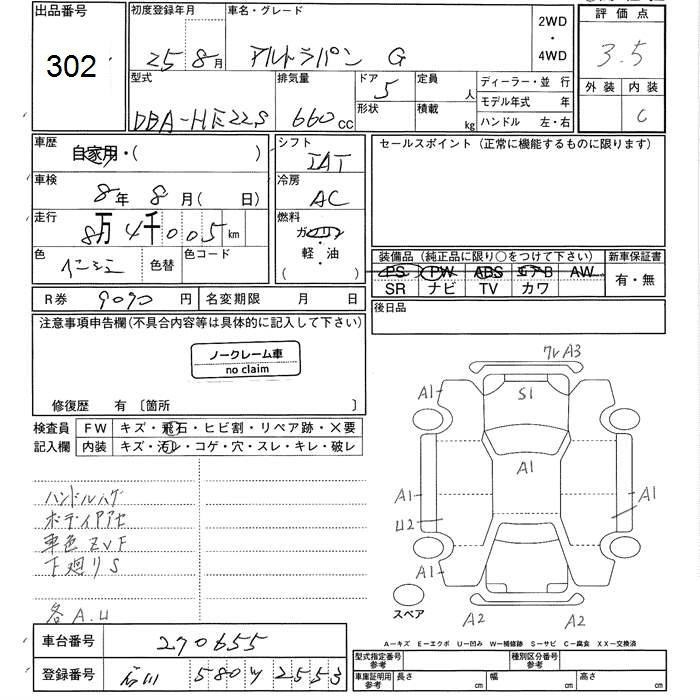 出品番号
302
初度登録年月
25 8月
車名・グレード
アルトラパン G
2WD
・
4WD
評価点
3.5
外装 内装
C
型式
DBA-HE22S
排気量
660cc
ドア
5
形状
定員
人
積載
kg
ディーラー・並 行
モデル年式 年
ハンドル 左・右
車歴
自家用・( )
シフト
IAT
セールスポイント (正常に機能するものに限ります)
車検
8年 8月( 日)
冷房
AC
走行
8万4千005km
燃料
ガソリン
軽・油
( )
色
色替
色コード
装備品 (純正品に限り○をつけて下さい)
新車保証書
PS PW ABS エアB AW
SR ナビ TV カワ
有・無
R券 9090円
名変期限 月 日
後日品
注意事項申告欄(不具合内容等は具体的に記入して下さい)
ノークレーム車
no claim
修復歴 有 〔箇所 〕
検査員
記入欄
FW キズ・飛石・ヒビ割・リペア跡・×要
内装 キズ・汚レ・コゲ・穴・スレ・キレ・破レ
ハンドルハゲ
ボディアアセ
車色ZVF
下廻りS
各A.U
ワレA3
A1
S1
A1
A1
A1
U2
A1
A1
A2
A2
スペア
A-キズ E-エクボ U-凹み W-補修跡 S-サビ C-腐食 XX-交換済
車台番号 270655
登録番号 石川 580 ワ 2553
型式指定番号
参考
種別区分番号
参考
車庫証明用
参考
長さ cm
幅 cm
高さ cm